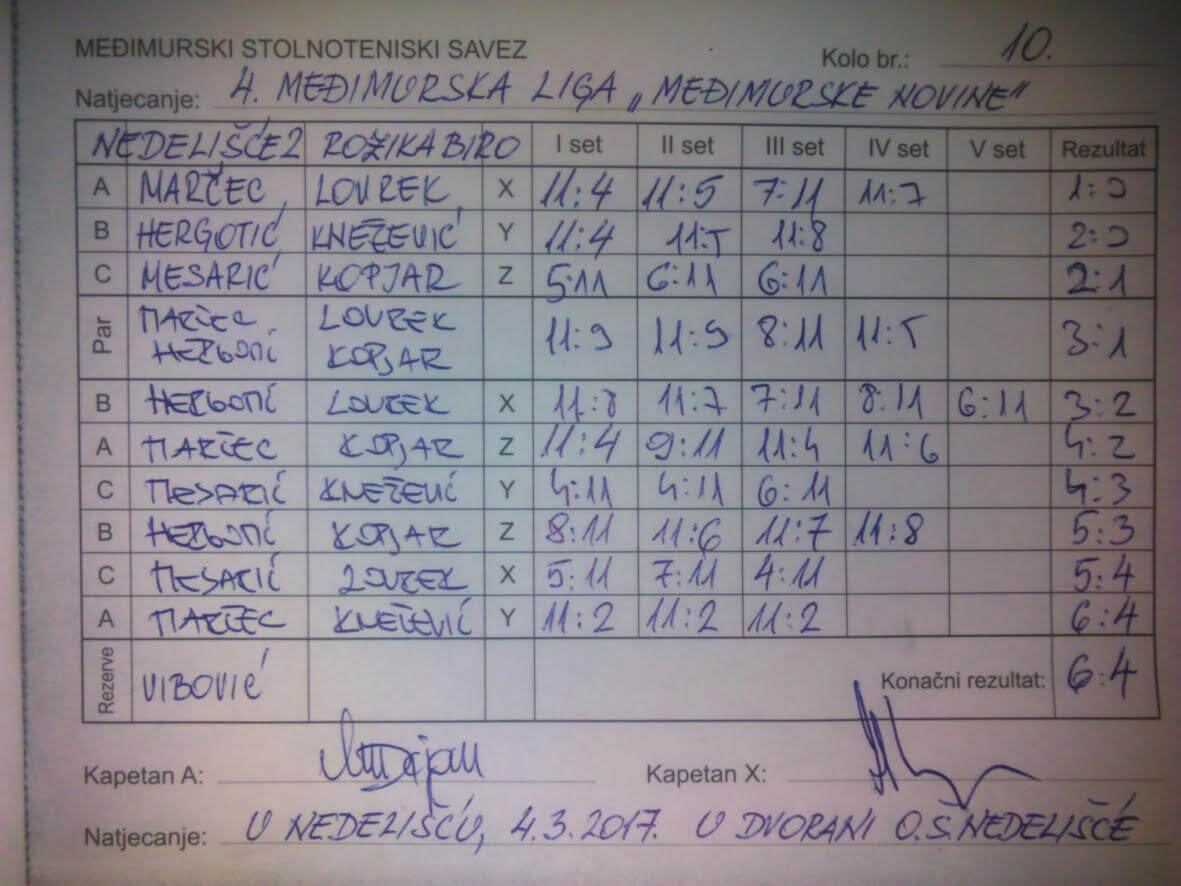 MEĐIMURSKI STOLNOTENISKI SAVEZ
Kolo br.: 10.
Natjecanje: 4. MEĐIMURSKA LIGA „MEĐIMURSKE NOVINE"
NEDELIŠĆE 2 ROŽIKA BIRO I set II set III set IV set V set Rezultat
A MARČEC LOVREK X 11:4 11:5 7:11 11:7 1:0
B HERGOTIĆ KNEŽEVIĆ Y 11:4 11:5 11:8 2:0
C MESARIĆ KOPJAR Z 5:11 6:11 6:11 2:1
Par MARČEC LOVREK 11:9 11:9 8:11 11:5 3:1
HERGOTIĆ KOPJAR
B HERGOTIĆ LOVREK X 11:8 11:7 7:11 8:11 6:11 3:2
A MARČEC KOPJAR Z 11:4 9:11 11:4 11:6 4:2
C MESARIĆ KNEŽEVIĆ Y 4:11 4:11 6:11 4:3
B HERGOTIĆ KOPJAR Z 8:11 11:6 11:7 11:8 5:3
C MESARIĆ LOVREK X 5:11 7:11 4:11 5:4
A MARČEC KNEŽEVIĆ Y 11:2 11:2 11:2 6:4
Rezerve VIBOVIĆ Konačni rezultat: 6:4
Kapetan A: Kapetan X:
Natjecanje: U NEDELIŠĆU, 4.3.2017. U DVORANI O.Š. NEDELIŠĆE